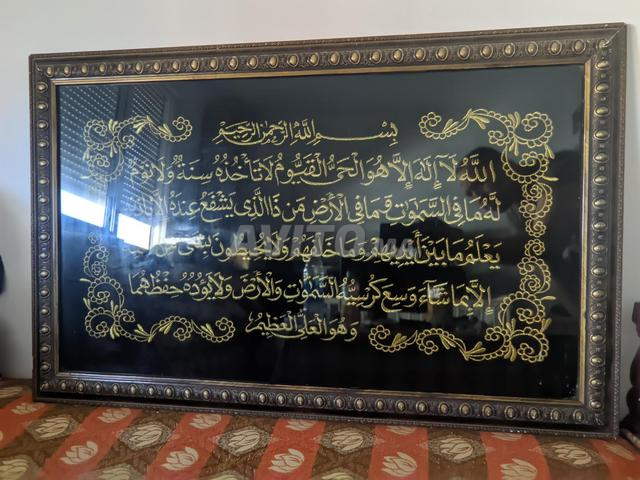 بِسْمِ اللهِ الرَّحْمٰنِ الرَّحِيْمِ
اَللهُ لَآ اِلٰهَ اِلَّا هُوَ الْحَيُّ الْقَيُّوْمُ لَا تَأْخُذُهٗ سِنَةٌ وَّلَا نَوْمٌ
لَهٗ مَا فِي السَّمٰوٰتِ وَمَا فِي الْاَرْضِ مَنْ ذَا الَّذِيْ يَشْفَعُ عِنْدَهٗ اِلَّا
يَعْلَمُ مَا بَيْنَ اَيْدِيْهِمْ وَمَا خَلْفَهُمْ وَلَا يُحِيْطُوْنَ بِشَيْءٍ
اِلَّا بِمَا شَآءَ وَسِعَ كُرْسِيُّهُ السَّمٰوٰتِ وَالْاَرْضَ وَلَا يَئُوْدُهٗ حِفْظُهُمَا
وَهُوَ الْعَلِيُّ الْعَظِيْمُ
AVITO.ma